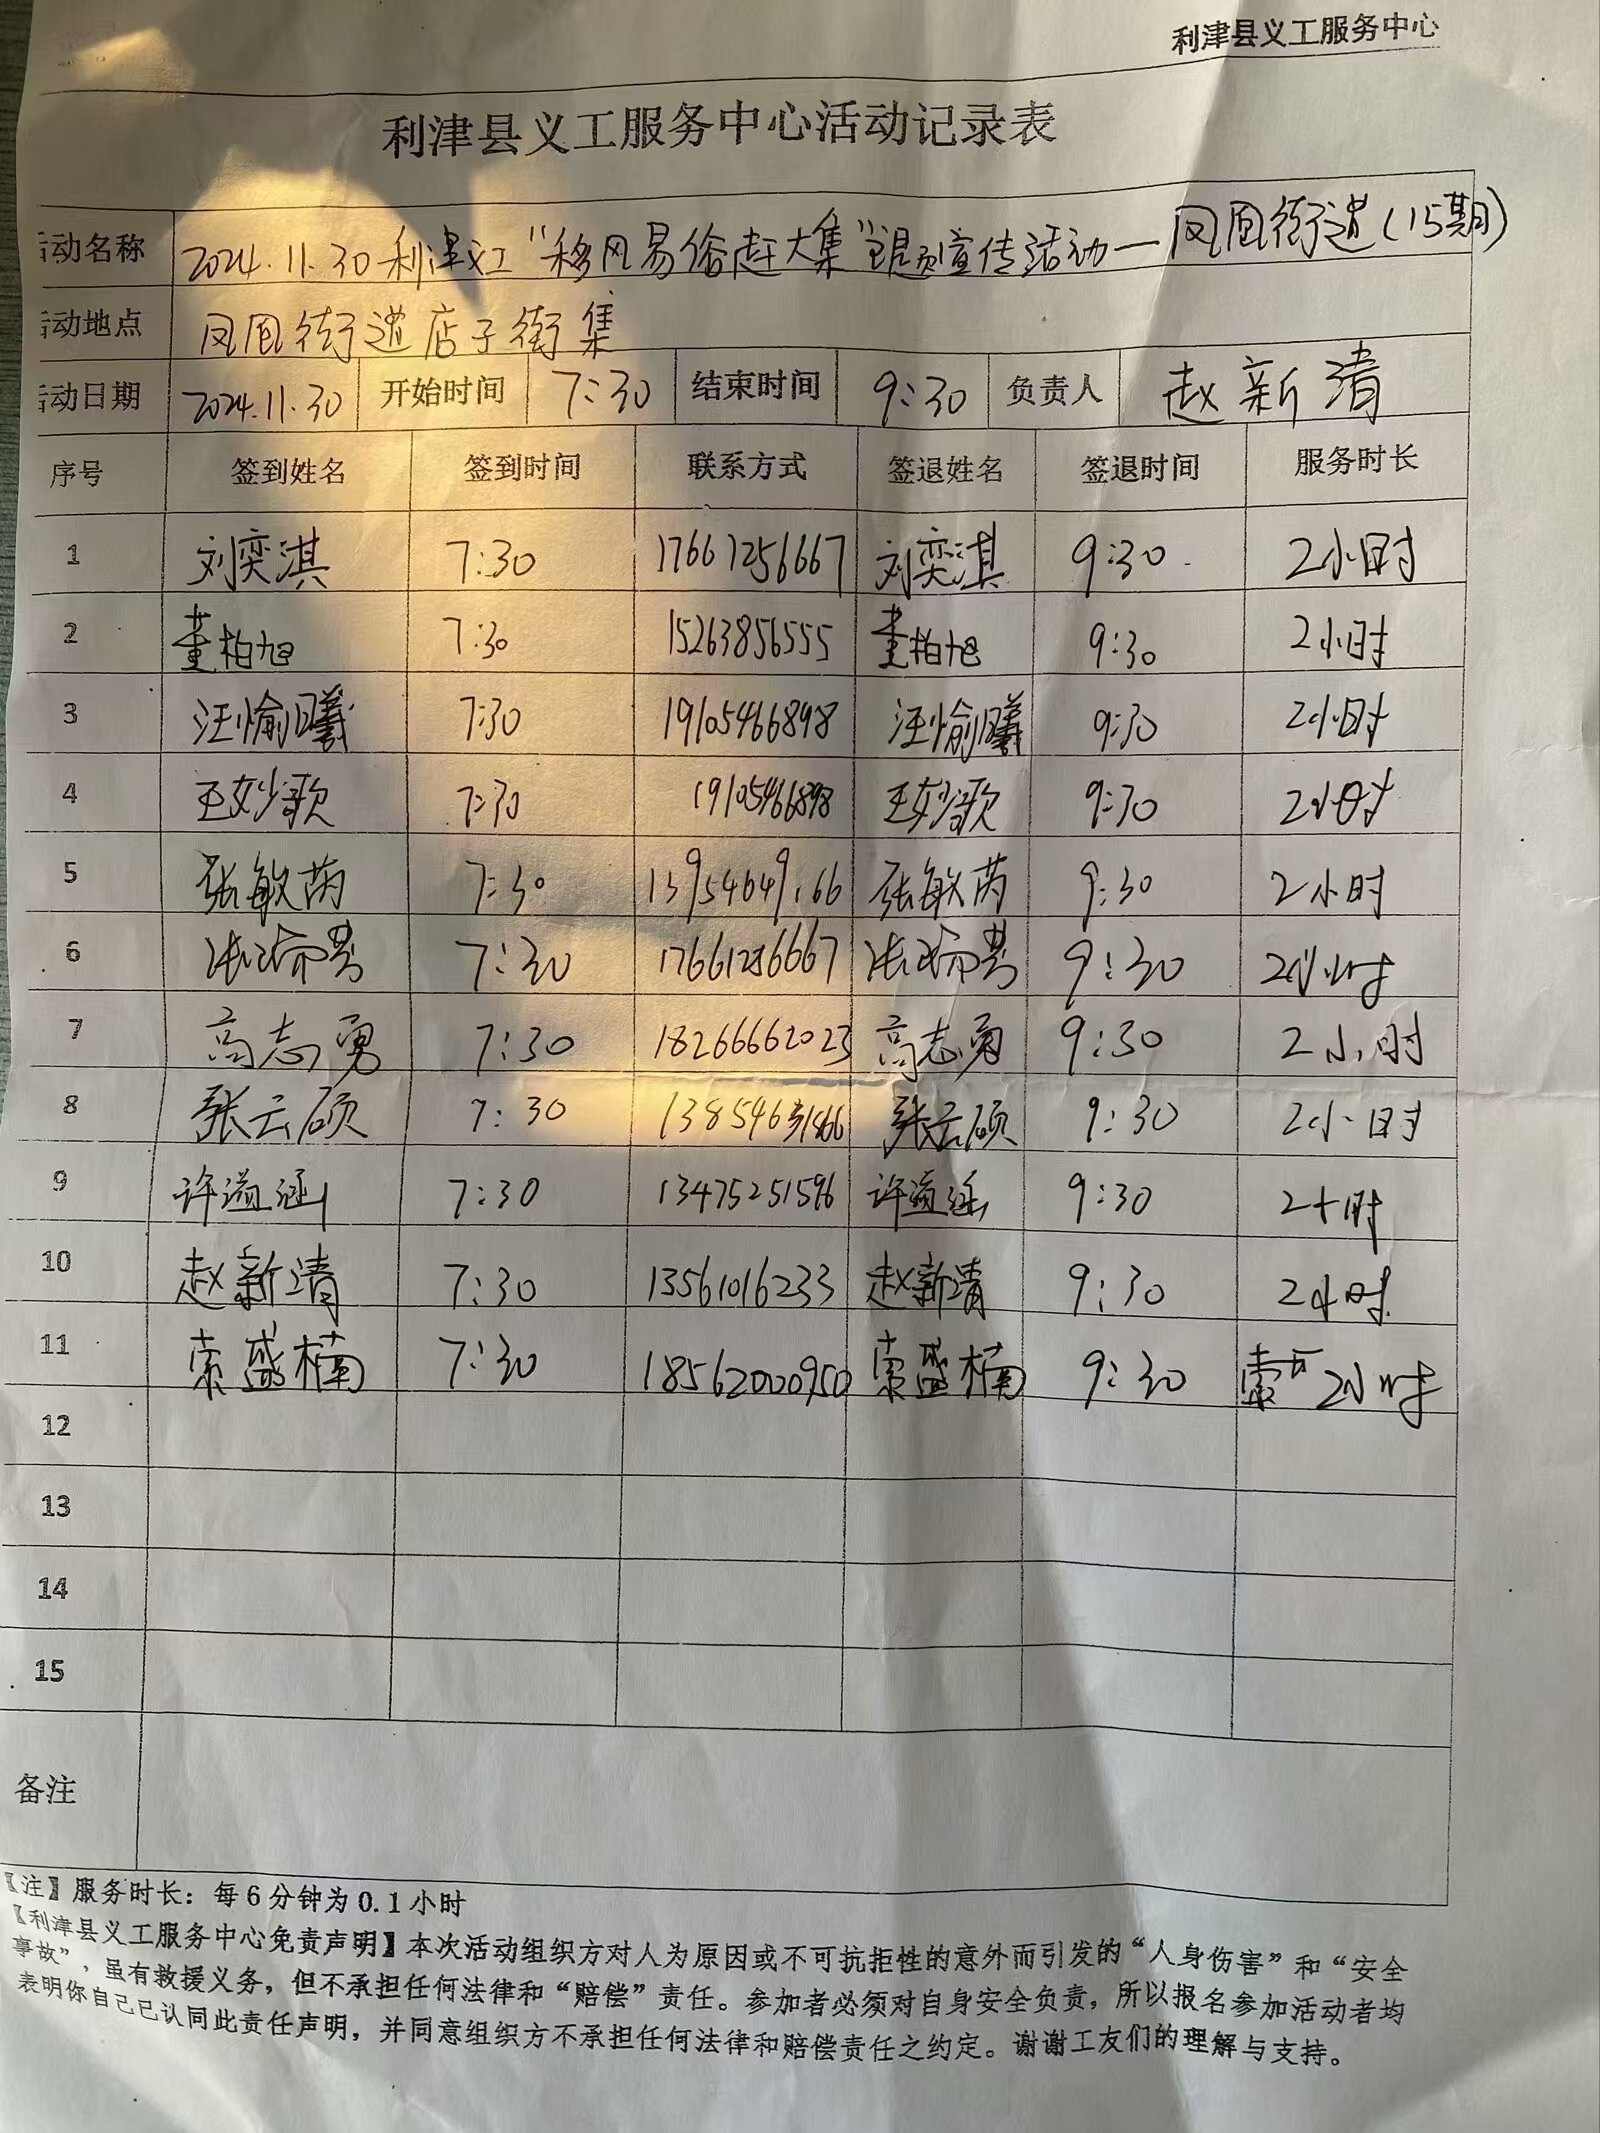 利津县义工服务中心
利津县义工服务中心活动记录表
活动名称 2024.11.30利津义工“移风易俗赶大集”主题宣传活动—凤凰街道(15期)
活动地点 凤凰街道店子街集
活动日期 2024.11.30 开始时间 7:30 结束时间 9:30 负责人 赵新清
序号 签到姓名 签到时间 联系方式 签退姓名 签退时间 服务时长
1 刘奕淇 7:30 17661256667 刘奕淇 9:30 2小时
2 董柏旭 7:30 15263856555 董柏旭 9:30 2小时
3 汪愉曦 7:30 19105466898 汪愉曦 9:30 2小时
4 王妙歌 7:30 19105466898 王妙歌 9:30 2小时
5 张敏芮 7:30 13954649166 张敏芮 9:30 2小时
6 7:30 17661256667 9:30 2小时
7 高志勇 7:30 18266662023 高志勇 9:30 2小时
8 张云硕 7:30 张云硕 9:30 2小时
9 许溢涵 7:30 13475251596 许溢涵 9:30 2小时
10 赵新清 7:30 13561016233 赵新清 9:30 2小时
11 索盛楠 7:30 18562020950 索盛楠 9:30 2小时
12
13
14
15
备注
【注】服务时长：每6分钟为0.1小时
【利津县义工服务中心免责声明】本次活动组织方对人为原因或不可抗拒性的意外而引发的“人身伤害”和“安全
事故”，虽有救援义务，但不承担任何法律和“赔偿”责任。参加者必须对自身安全负责，所以报名参加活动者均
表明你自己已认同此责任声明，并同意组织方不承担任何法律和赔偿责任之约定。谢谢工友们的理解与支持。